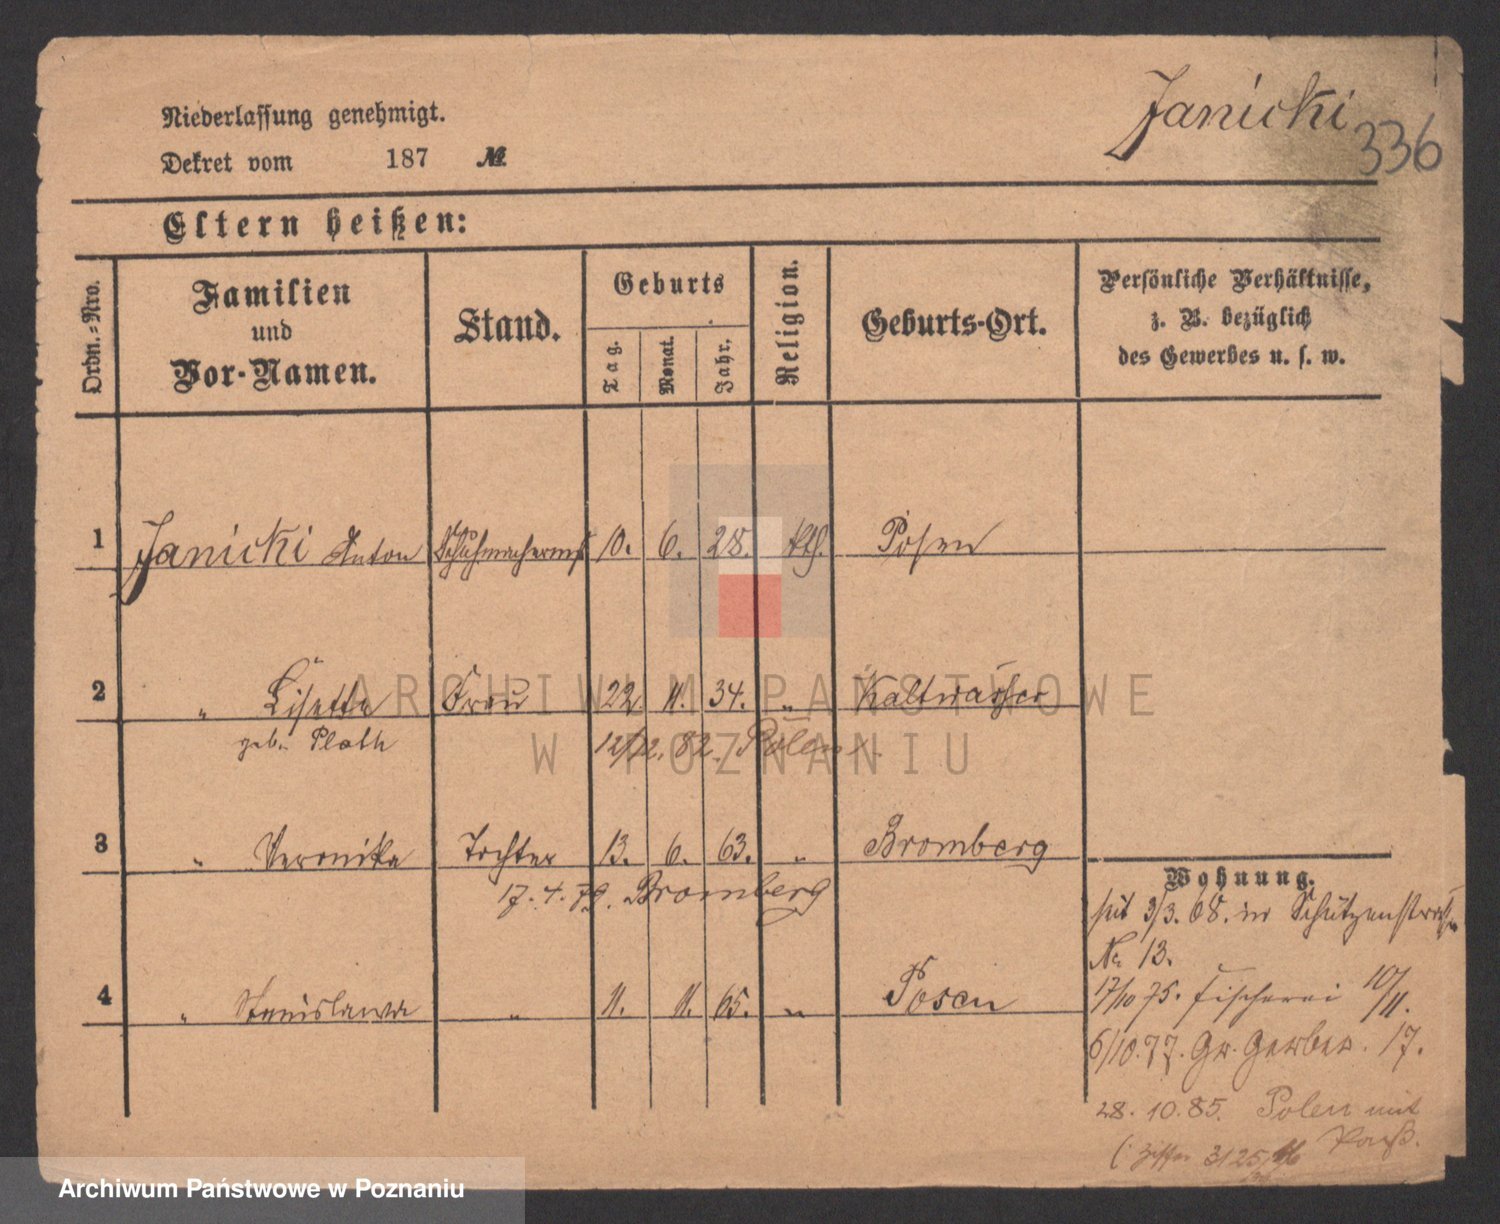 Janicki
336
Niederlassung genehmigt.
Dekret vom 187 №
Eltern heißen:
Ordn.-Nro.
Familien und Vor-Namen.
Stand.
Geburts
Tag.
Monat.
Jahr.
Religion.
Geburts-Ort.
Persönliche Verhältnisse,
z. B. bezüglich
des Gewerbes u. s. w.
1 Janicki Anton Schuhmachermst 10. 6. 28. kth. Posen
2 " Lisette Frau 22. 11. 34. " Kaltwasser
geb. Plath 12/12. 82. Polen
3 " Veronika Tochter 13. 6. 63. " Bromberg
17. 4. 79. Bromberg
4 " Stanislawa " 11. 11. 65. " Posen
Wohnung.
seit 3/3. 68. in Schützenstraße
No 13.
17/10 75. Fischerei 10/11.
6/10. 77. Gr. Gerber. 17.
28. 10. 85. Polen mit
Paß.
(Ziffer 3125
ARCHIWUM PAŃSTWOWE
W POZNANIU
Archiwum Państwowe w Poznaniu